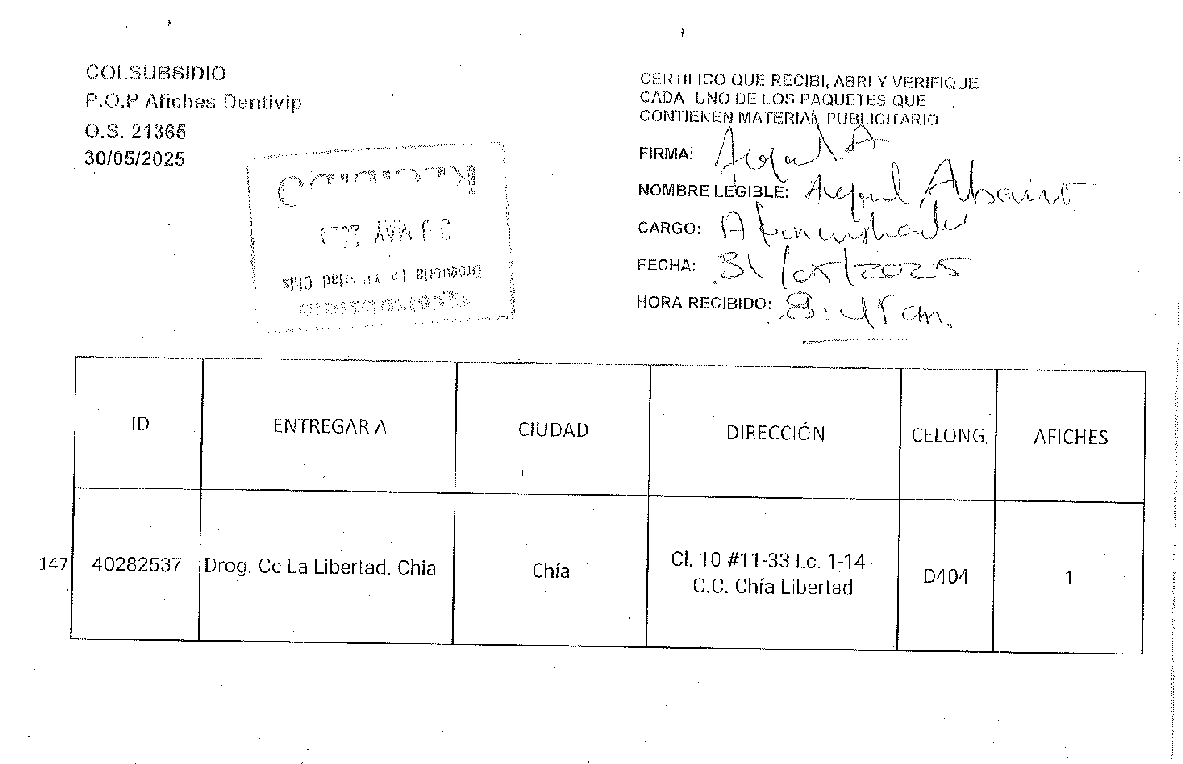 COLSUBSIDIO
P.O.P Afiches Dentivip
O.S. 21365
30/05/2025
CERTIFICO QUE RECIBI, ABRI Y VERIFIQUE
CADA UNO DE LOS PAQUETES QUE
CONTIENEN MATERIAL PUBLICITARIO
FIRMA:
NOMBRE LEGIBLE:
CARGO:
FECHA: 31/05/2025
HORA RECIBIDO:
ID ENTREGAR A CIUDAD DIRECCIÓN CELONG. AFICHES
147 40282537 Drog. Cc La Libertad. Chia Chía Cl. 10 #11-33 Lc. 1-14 D404 1
C.C. Chía Libertad